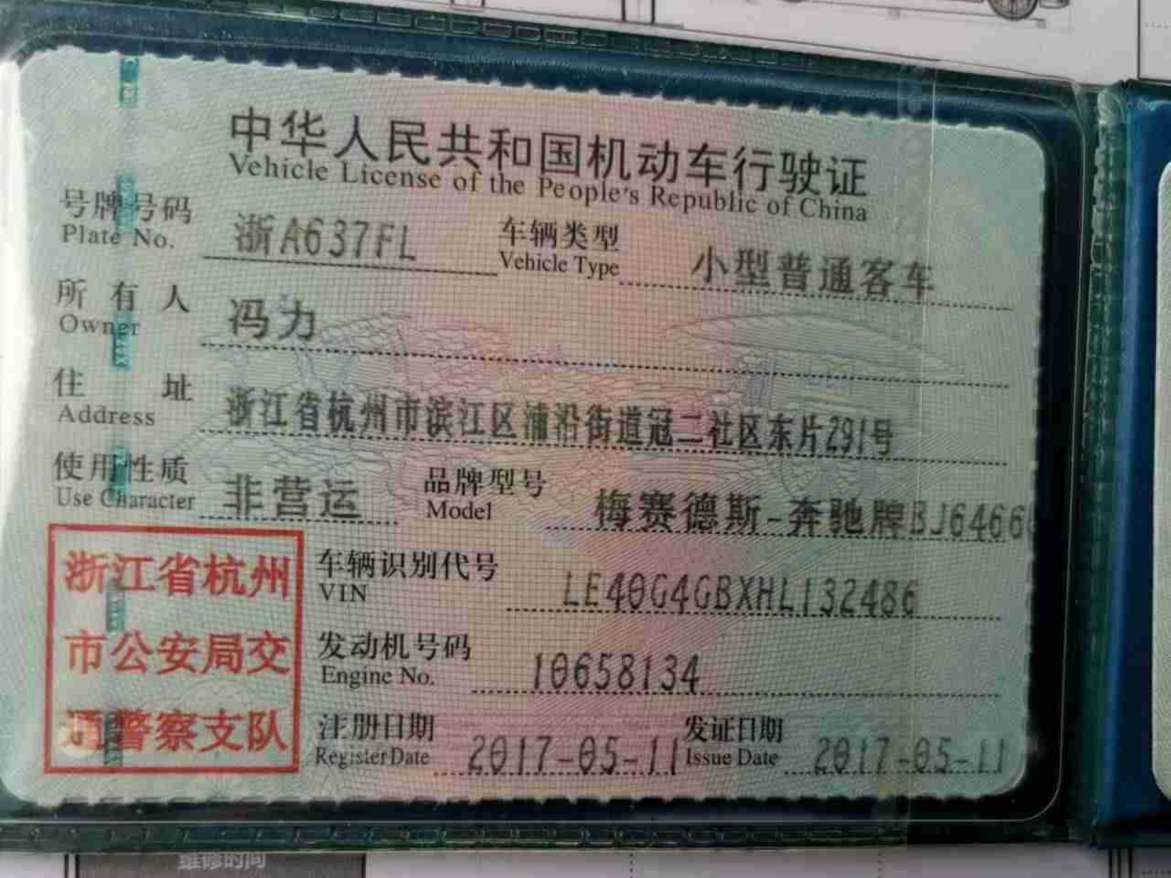 中华人民共和国机动车行驶证
Vehicle License of the People's Republic of China
号牌号码 浙A637FL 车辆类型 小型普通客车
Plate No. Vehicle Type
所有人 冯力
Owner
住址 浙江省杭州市滨江区浦沿街道冠二社区东片291号
Address
使用性质 非营运 品牌型号 梅赛德斯-奔驰牌BJ6466
Use Character Model
浙江省杭州
市公安局交
通警察支队
车辆识别代号 LE40G4GBXHL132486
VIN
发动机号码 10658134
Engine No.
注册日期 2017-05-11 发证日期 2017-05-11
Register Date Issue Date
维修时间